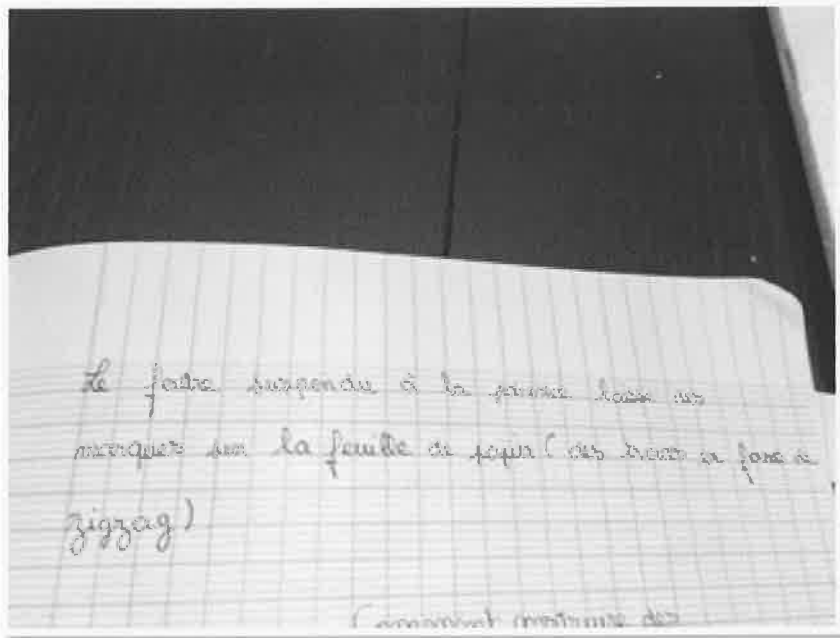 Le feutre suspendu à la pince laisse des
marques sur la feuille de papier ( des traces en forme de
zigzag )
Comment construire des